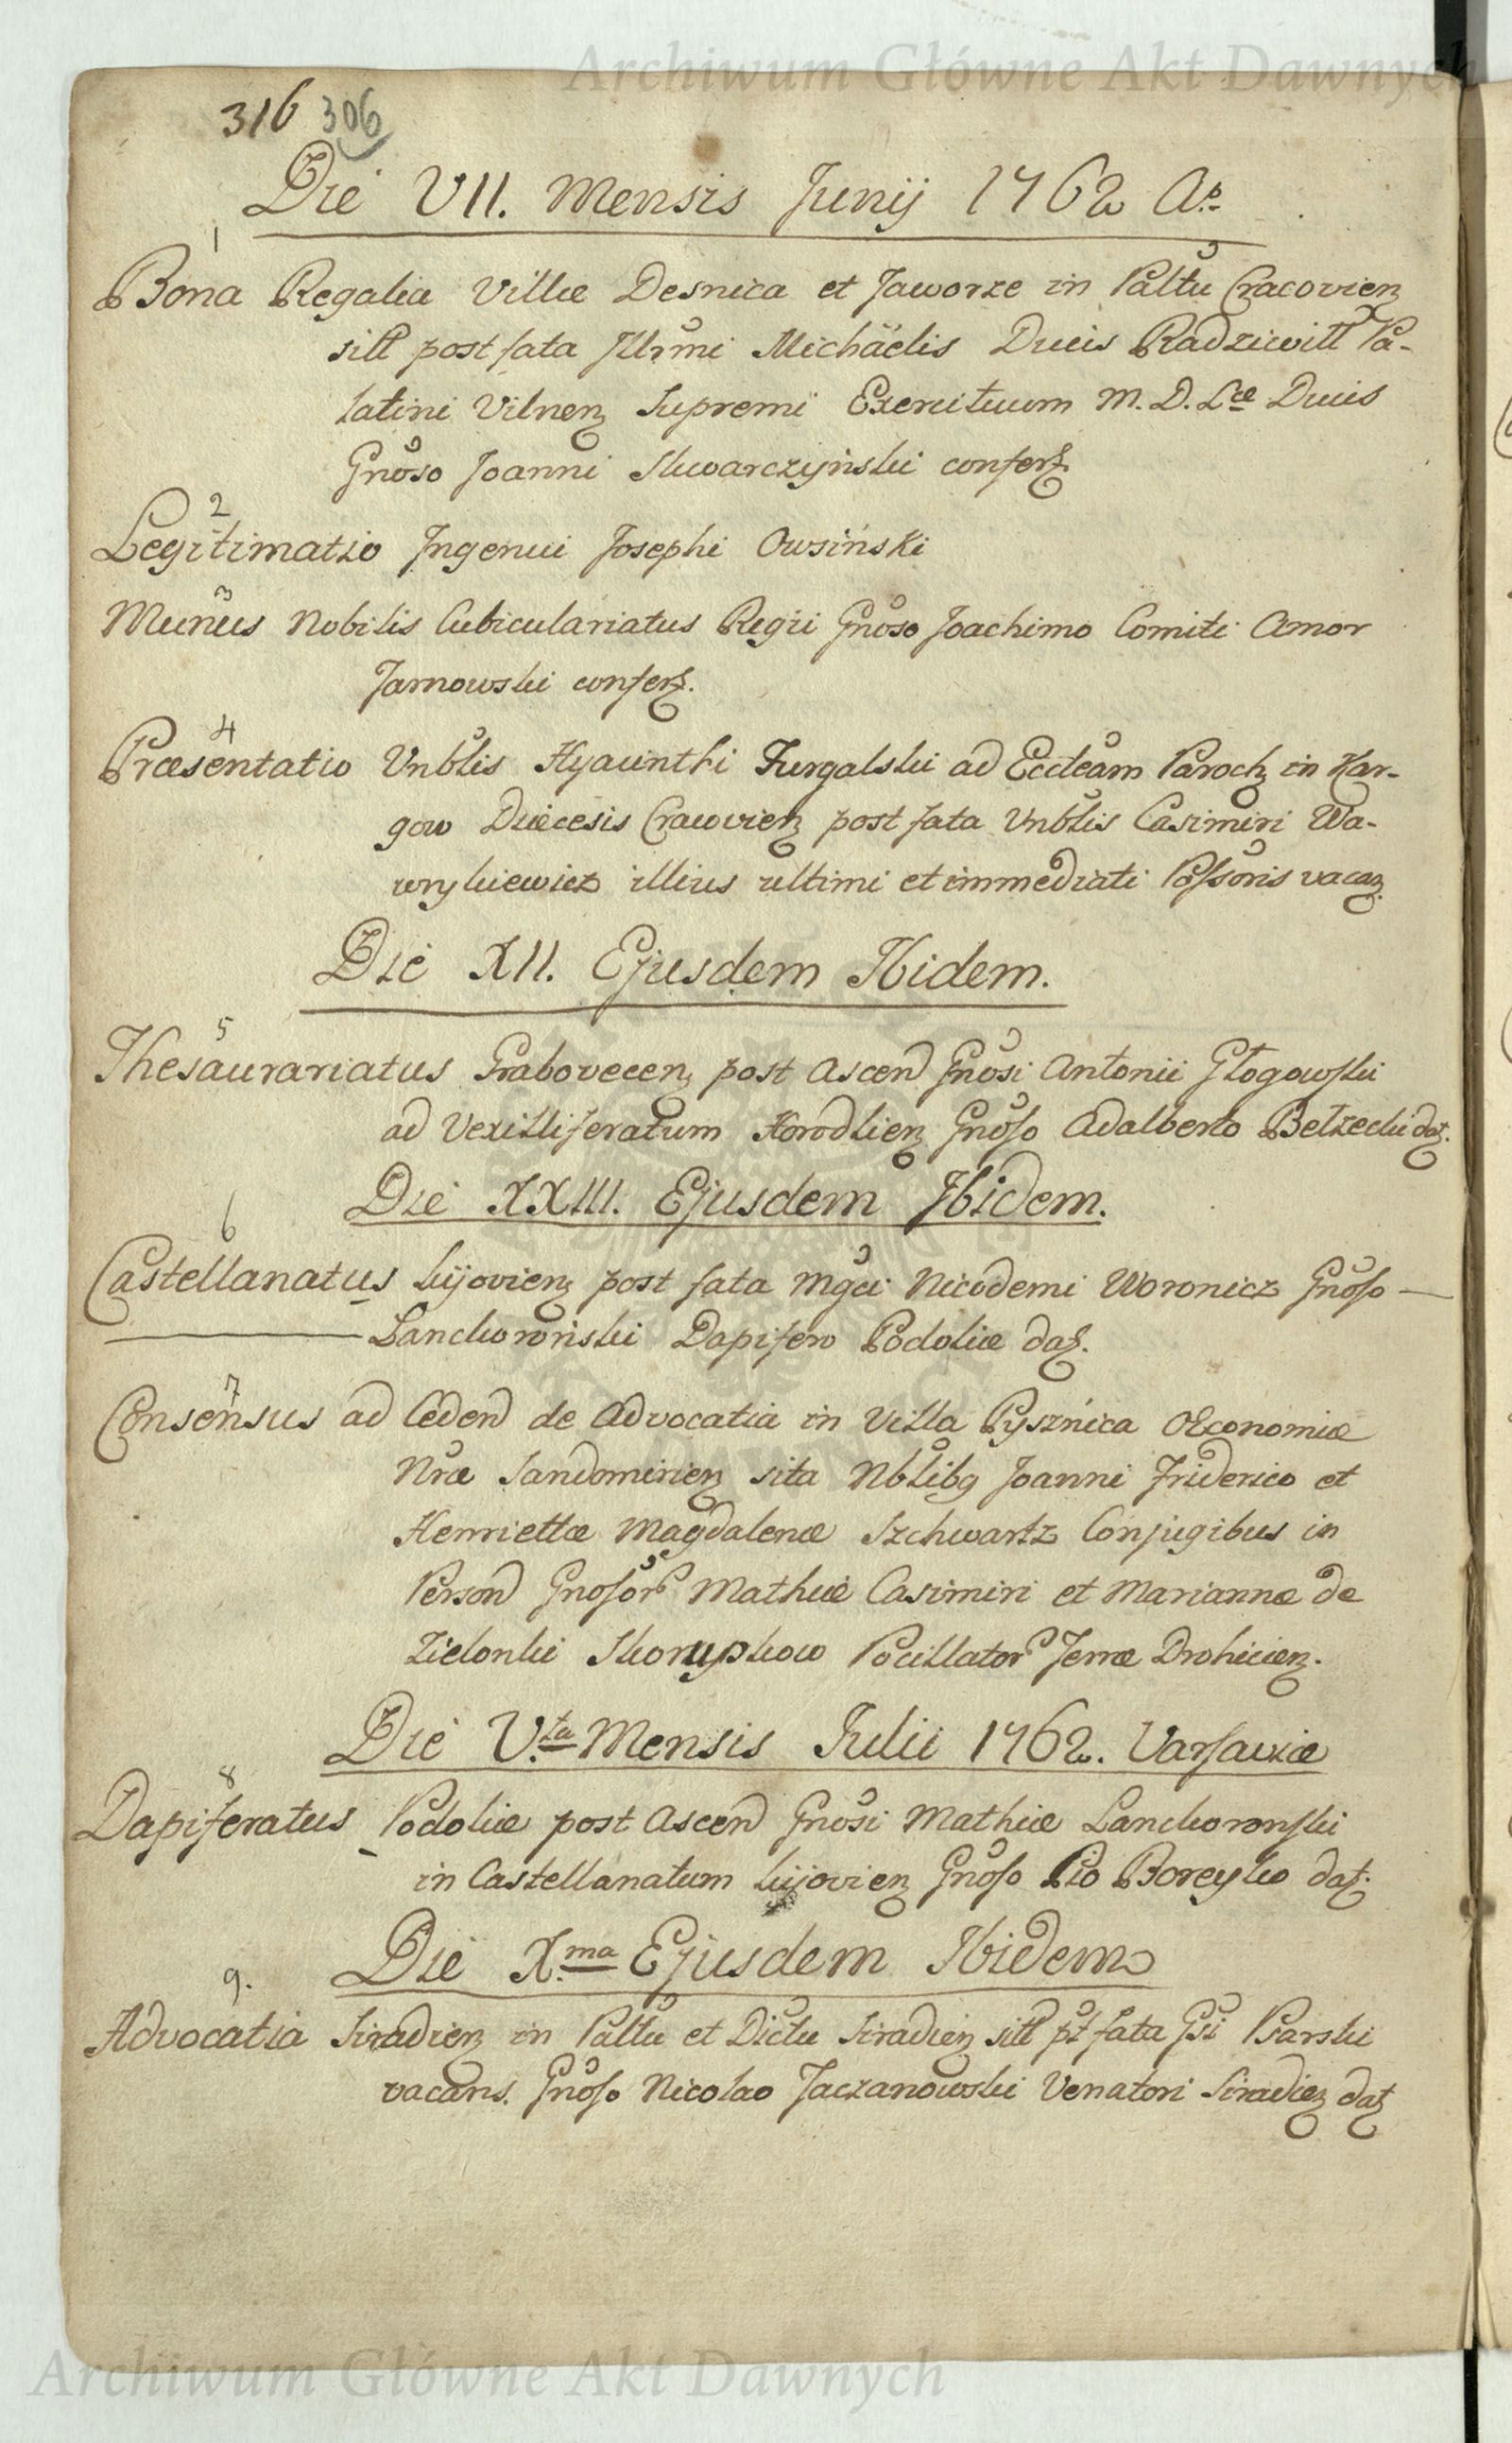 Archiwum Główne Akt Dawnych
316 306
Die VII. Mensis Junij 1762 Ao.
1
Bona Regalia Villae Desnica et Jaworze in Palttu Cracovien
sitt post fata Illrmi Michäelis Ducis Radziwill Pa-
latini Vilnen Supremi Exercituum M. D. Lae Ducis
Gnoso Joanni Skwarczyński confert
2
Legitimatio Ingenui Josephi Owsiński
3
Munus Nobilis Cubiculariatus Regii Gnoso Joachimo Comiti Amor
Tarnowski confert.
4
Praesentatio Vnblis Hyacinthi Furgalski ad Eccleam Paroch in Kar-
gow Diaecesis Cracovien post fata Vnblis Casimiri Wa-
wrykiewicz illius ultimi et immediati Possoris vacan
Die XII. Ejusdem Ibidem.
5
Thesaurariatus Grabovecen post Ascend Gnosi Antonii Głogowski
ad Vexilliferatum Horodlien Gnoso Adalberto Bełzecki dat.
Die XXIII. Ejusdem Ibidem.
6
Castellanatus kijovien post fata Mgci Nicodemi Woronicz Gnoso —
— Lanckoroński Dapifero Podoliae dat.
7
Consensus ad Cedend de Advocatia in Villa Pysznica OEconomiae
Nrae Sandomirien sita Nblibg Joanni Friderico et
Henriettae Magdalenae Szchwartz Conjugibus in
Person Gnosor Mathiae Casimiri et Mariannae de
Zielonki Skorupkow Pocillator Terrae Drohicien.
Die V.ta Mensis Julii 1762. Varsaviae
8
Dapiferatus Podoliae post Ascend Gnosi Mathiae Lanckoronski
in Castellanatum kijovien Gnoso Pio Boreyko dat.
Die X.ma Ejusdem Ibidem
9.
Advocatia Siradien in Palttu et Dictu Siradien sitt pt fata Gsi Psarski
vacans. Gnoso Nicolao Jaczanowski Venatori Siradien dat
Archiwum Główne Akt Dawnych